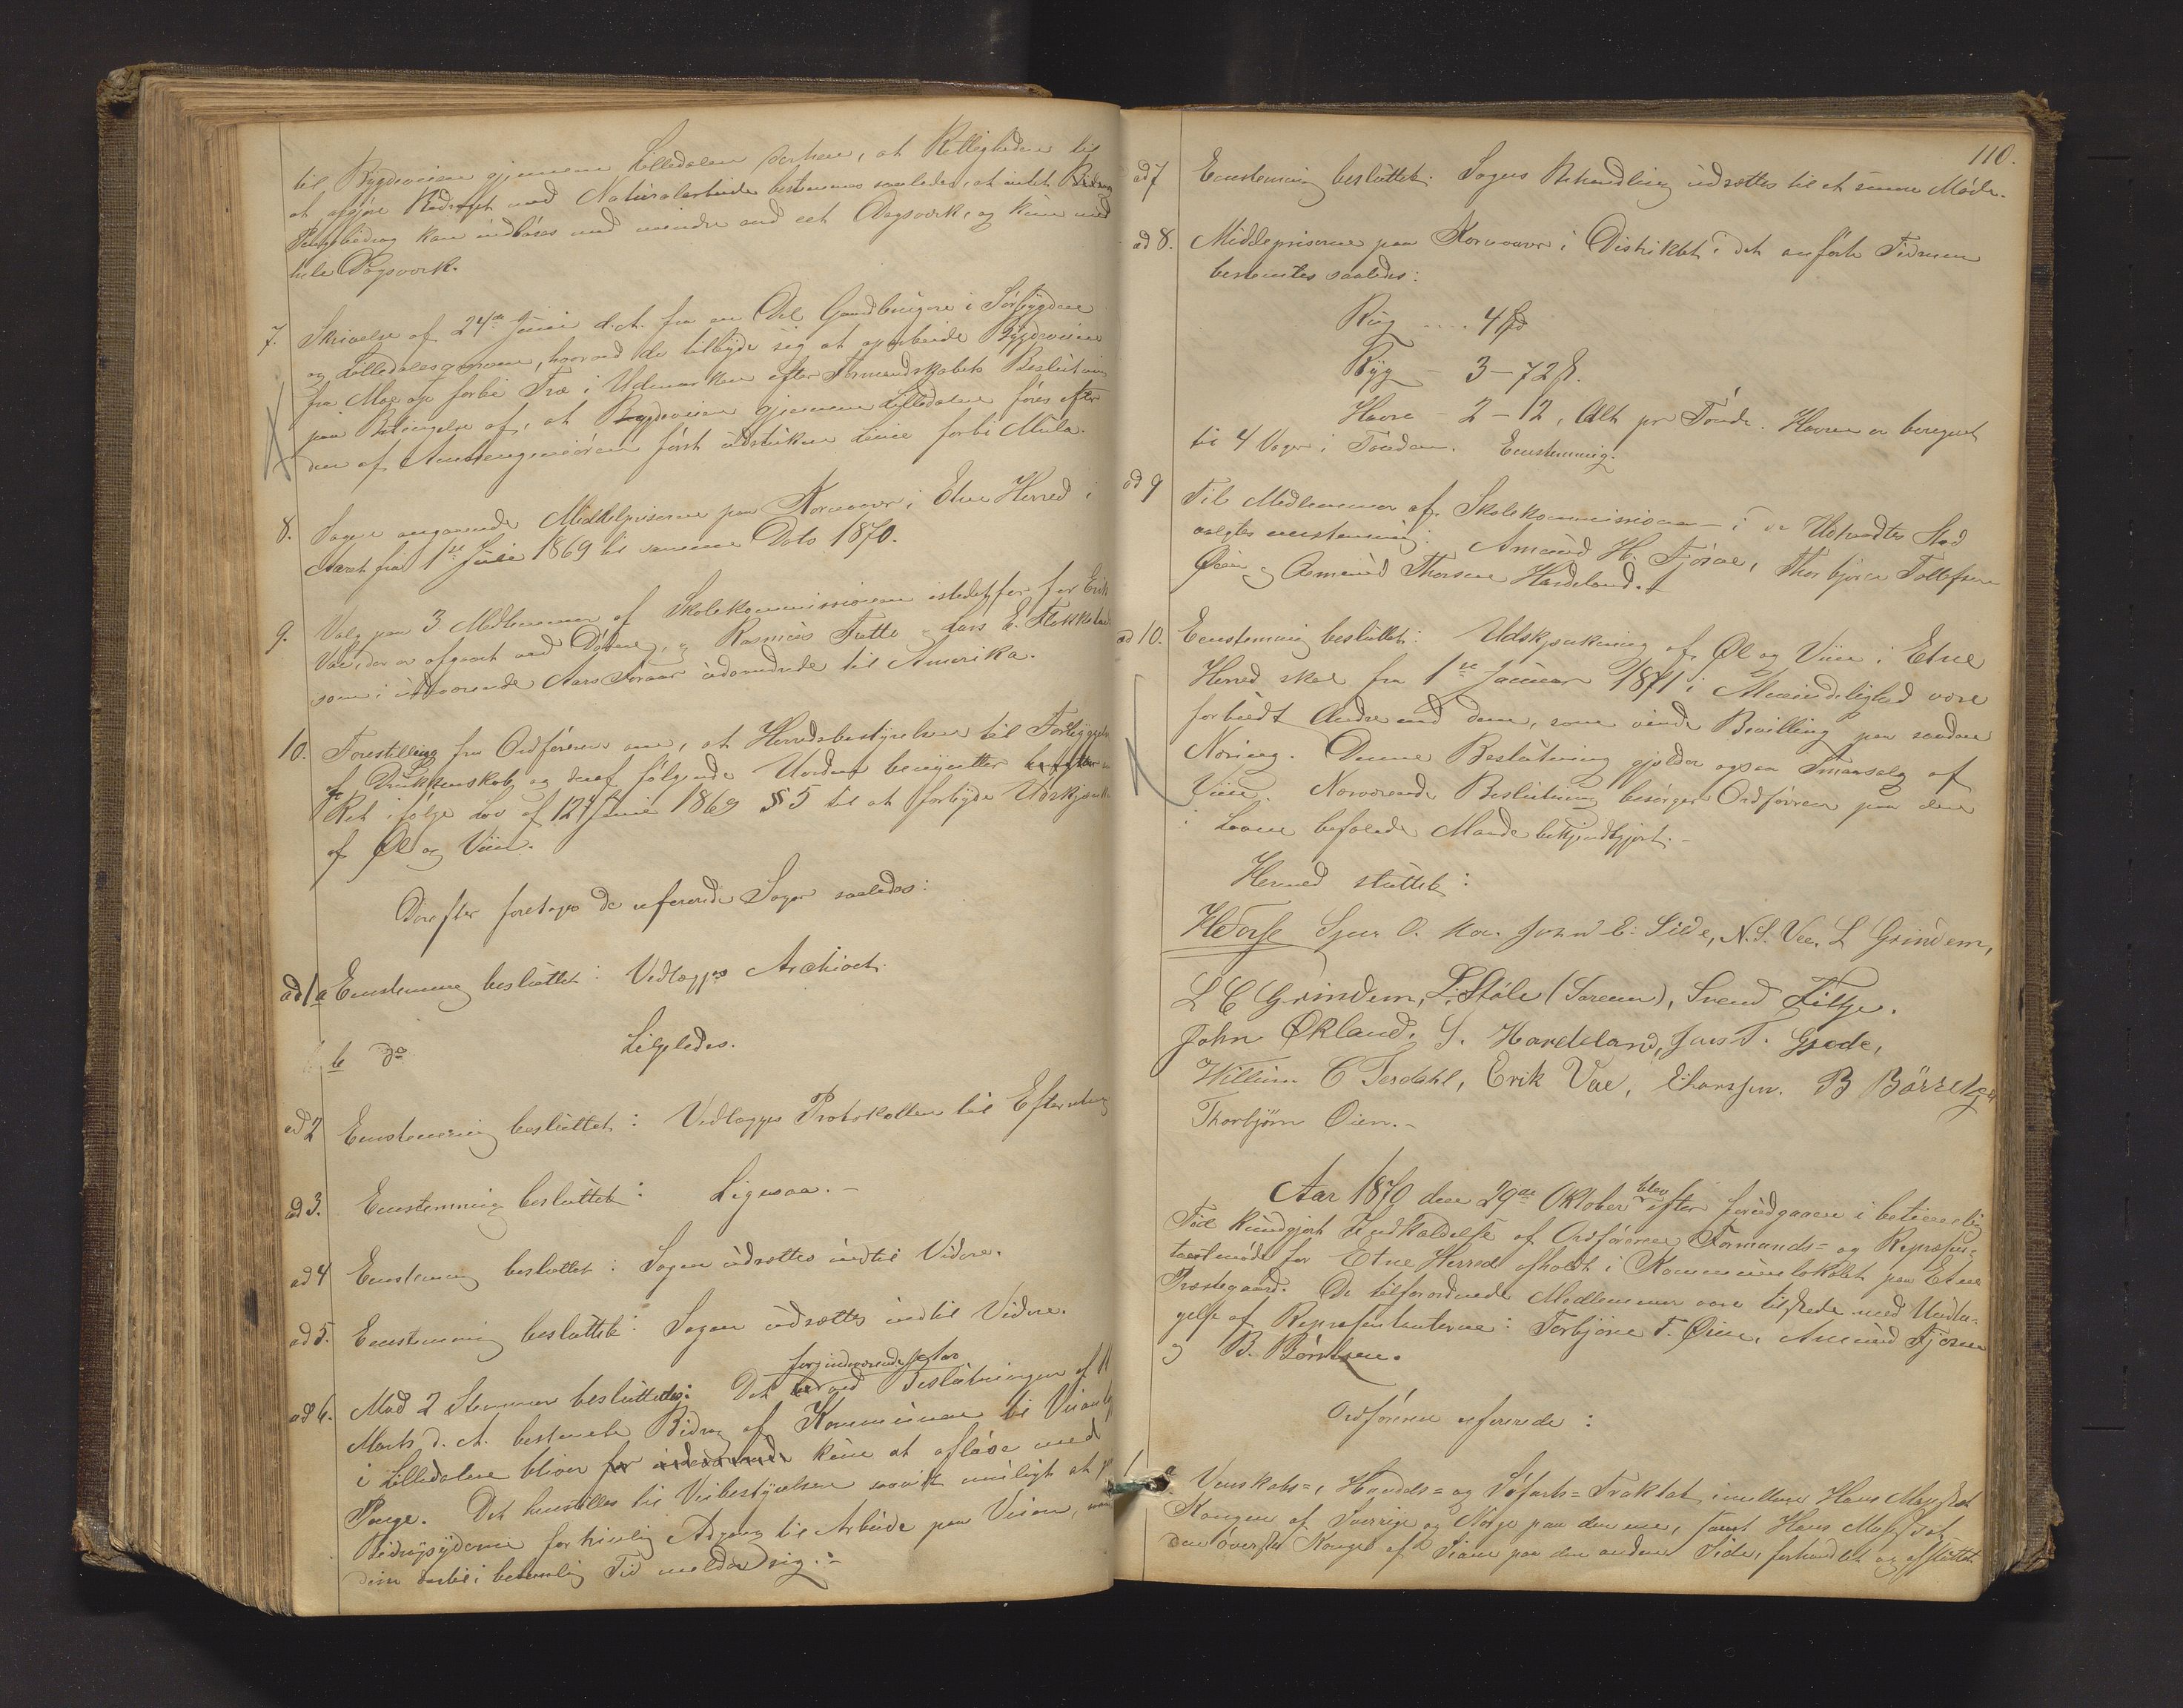 til Bygdeveien gjennem Lilledalen derhen, at Rettigheden til
at afgjøre Bidraget med Naturalarbeide bestemmes saaledes, at intet
Pengebidrag kan indløses med mindre end eet Dagsverk, og kun med
hele Dagsverk.
7. Skrivelse af 24de Juni d.A. fra en Del Gaardbrugere i Sørbygdene
og Lilledalesgrænd, hvorved de tilbyde sig at oparbeide Bygdeveien
fra Moe op forbi Træ i Udmarken efter Formandskabets Beslutning
paa Betingelse af, at Bygdeveien gjennem Lilledalen føres efter
den af Amtsingeniøren først udstukne Linie forbi Mula.
8. Sagen angaaende Middelpriserne paa Kornvarer i Etne Herred i
Aaret fra 1ste Juli 1869 til samme Dato 1870.
9. Valg paa 3 Medlemmer af Skolekommissionen istedetfor for Erik
Vae, der er afgaaet ved Døden, og Rasmus Tutto Lars E. Flokketvedt
som i indeværende Aars Foraar udvandrede til Amerika.
10. Forestilling fra Ordføreren om, at Herredsbestyrelsen til Forebyggelse
af Drukkenskab og deraf følgende Uorden benytter
Ret ifølge Lov af 12te Juni 1869 § 5 til at forbyde Udskjænkning
af Øl og Viin.
Derefter foretages de refererede Sager saaledes:
ad 1 a Eenstemmig besluttet: Vedlægges Archivet.
b do Ligeledes.
ad 2 Eenstemmig besluttet: Vedlægges Protokollen til Efterretning
ad 3. Eenstemmig besluttet: Ligesaa.-
ad 4 Eenstemmig besluttet: Sagen udsættes indtil Videre.
ad 5. Eenstemmig besluttet: Sagen udsættes indtil Videre.
for indeværende Aar
ad 6. Med 2 Stemmer besluttedes: Det ved Beslutningen af
Marts d. A. bestemte Bidrag af Kommunen til Veianlæg
i Lilledalen bliver for indeværende kun at afløse med
Penge. Det henstilles til Veibestyrelsen saavidt muligt at
Bidragsyderne fortrinlig Adgang til Arbeide paa Veien, naar
disse dertil i betimelig Tid melder sig.-
110.
ad 7 Eenstemmig besluttet: Sagens Behandling udsættes til et senere Møde.
ad 8. Middelpriserne paa Kornvarer i Distriktet i det anførte Tidsrum
bestemtes saaledes:
Rug ... 4 Spd
Byg - 3 - 72 ß.
Havre - 2 - 12, Alt pr Tønde. Havren er beregnet
til 4 Voger i Tønden. Eenstemmig.
ad 9 Til Medlemmer af Skolekommissionen i de Udtraadtes Sted
valgtes eenstemmig: Amund H. Fjøsne, Thorbjørn Tollefsen
Øien og Asmund Thorsen Hardeland.
ad 10. Eenstemmig besluttet: Udskjænkning af Øl og Viin i Etne
Herred skal fra 1ste Januar 1871 i Almindelighed være
forbudt Andre end dem, som vinde Bevilling paa saadan
Næring. Denne Beslutning gjelder ogsaa Smaasalg af
Viin. Nærværende Beslutning besørger Ordføreren paa den
i Loven befalede Maade bekjendtgjort.-
Hermed sluttet:
Sjur O. Moe. John E. Silde, N. S. Vee, L Grindem,
L C Grindem, L. Støle (Sørenes), Svend Fitje.
John Økland, S. Hardeland, Jens T. Gjerde,
Willum C Tesdahl, Erik Vae, B Børretzen
Thorbjørn Øien.-
Aar 1870 den 29de Oktober blev efter foredgaaen i betimelig
Tid kundgjort Indkaldelse af Ordføreren Formands= og Repræsen=
tantmøde for Etne Herred afholdt i Kommunelokalet paa Etne
Præstegaard. De tilforordnede Medlemmer vare tilstede med Undta=
gelse af Repræsentanterne: Torbjørn T. Øien, Amund Fjøsne
og B. Børretsen.
Ordføreren refererede:
1. a Venskabs=, Handels= og Søfarts=Traktat imellem Hans Majestæt
Kongen af Sverrige og Norge paa den ene, samt Hans Majestæt
den øverste Konge af Siam paa den anden Side, forhandlet og afsluttet